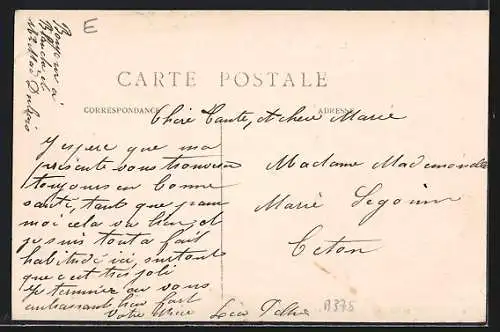 E
Bonjour à
CARTE POSTALE
CORRESPONDANCE
ADRESSE
Chère Tante, et chère Marie
J'espère que ma
présente vous trouvera
toujours en bonne
santé, tant que pour
moi cela va bien, et
je suis tout à fait
habitué ici, surtout
que c'est très joli
Je termine en vous
embrassant bien fort
Votre Nièce
Léa
Madame Mademoiselle
Marie Segouin
Ceton
A375